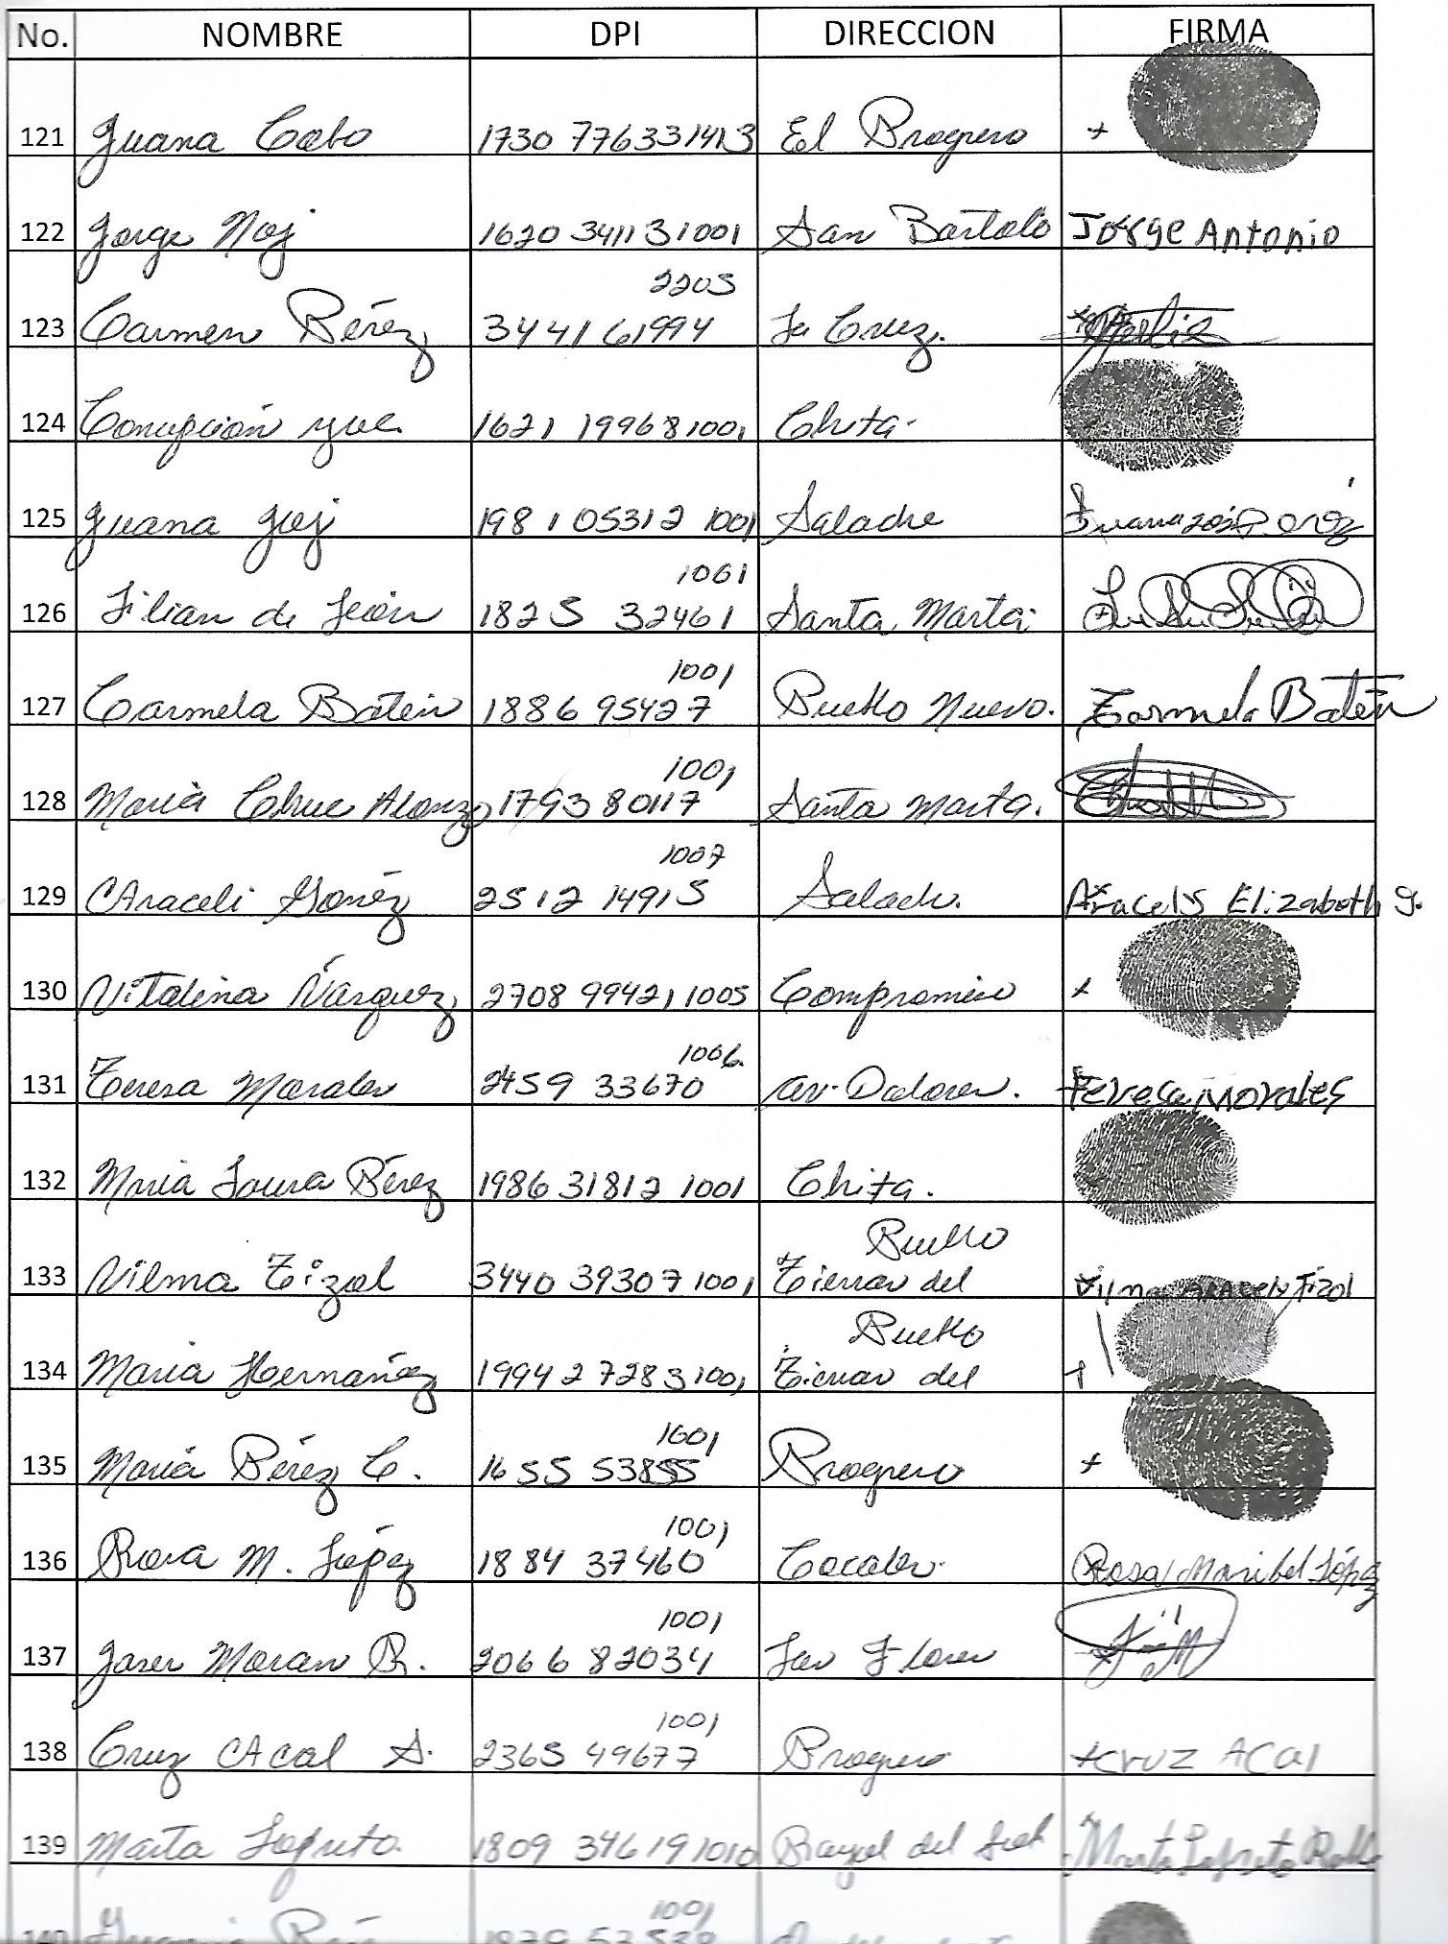 No. NOMBRE DPI DIRECCION FIRMA
121 Juana Cobo 1730 776331413 El Progreso +
122 Jorge Noj 1620 341131001 San Bartolo Jorge Antonio
2205
123 Carmen Pérez 3441 61994 La Cruz.
124 Concepción 1621 199681001 Chita.
125 Juana Joj 1981 05312 1001 Salache Juana
1001
126 Lilian de León 1825 32461 Santa Marta.
1001
127 Carmela Batén 1886 95427 Pueblo Nuevo. Carmela Batén
1001
128 Maria Chuc Alonzo 1793 80117 Santa Marta.
1007
129 Araceli Goméz 2512 14915 Salach. Aracels Elizaboth g.
130 Vitalina Vásquez 2708 994211005 Compromiso +
1006.
131 Teresa Morales 2459 33670 av. Dolores. Teresa Morales
132 Maria Laura Pérez 1986 31812 1001 Chita.
Pueblo
133 Vilma Tizol 3440 39307 1001 Tierras del Vilma Aracely Tizol
Pueblo
134 Maria Hernánez 1994 272831001 Tierras del +
1001
135 Maria Pérez C. 1655 53855 Progreso +
1001
136 Rosa M. López 1884 37460 Cocales. Rosa Maribel López
1001
137 Moran R. 2066 82034 Las Flores
1001
138 Cruz Acal S. 2365 49677 Progreso +cruz Acal
139 Marta 1809 346191010 del Marta
1001
140 1879